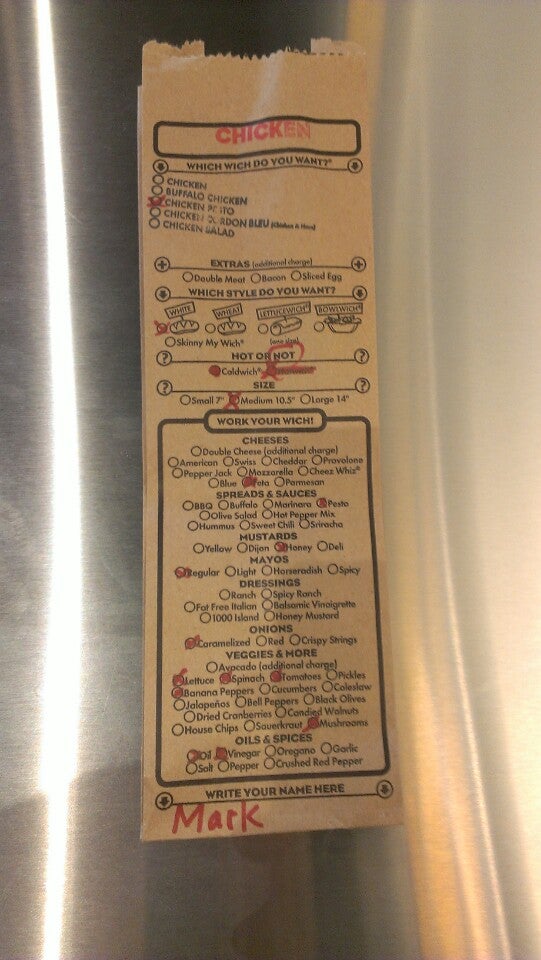 CHICKEN
WHICH WICH DO YOU WANT?®
CHICKEN
BUFFALO CHICKEN
CHICKEN PESTO
CHICKEN CORDON BLEU (Chicken & Ham)
CHICKEN SALAD
EXTRAS (additional charge)
Double Meat Bacon Sliced Egg
WHICH STYLE DO YOU WANT?
WHITE WHEAT LETTUCEWICH® BOWLWICH®
Skinny My Wich® (one size)
HOT OR NOT
Coldwich®
SIZE
Small 7" Medium 10.5" Large 14"
WORK YOUR WICH!
CHEESES
Double Cheese (additional charge)
American Swiss Cheddar Provolone
Pepper Jack Mozzarella Cheez Whiz®
Blue Feta Parmesan
SPREADS & SAUCES
BBQ Buffalo Marinara Pesto
Olive Salad Hot Pepper Mix
Hummus Sweet Chili Sriracha
MUSTARDS
Yellow Dijon Honey Deli
MAYOS
Regular Light Horseradish Spicy
DRESSINGS
Ranch Spicy Ranch
Fat Free Italian Balsamic Vinaigrette
1000 Island Honey Mustard
ONIONS
Caramelized Red Crispy Strings
VEGGIES & MORE
Avocado (additional charge)
Lettuce Spinach Tomatoes Pickles
Banana Peppers Cucumbers Coleslaw
Jalapeños Bell Peppers Black Olives
Dried Cranberries Candied Walnuts
House Chips Sauerkraut Mushrooms
OILS & SPICES
Oil Vinegar Oregano Garlic
Salt Pepper Crushed Red Pepper
WRITE YOUR NAME HERE
Mark